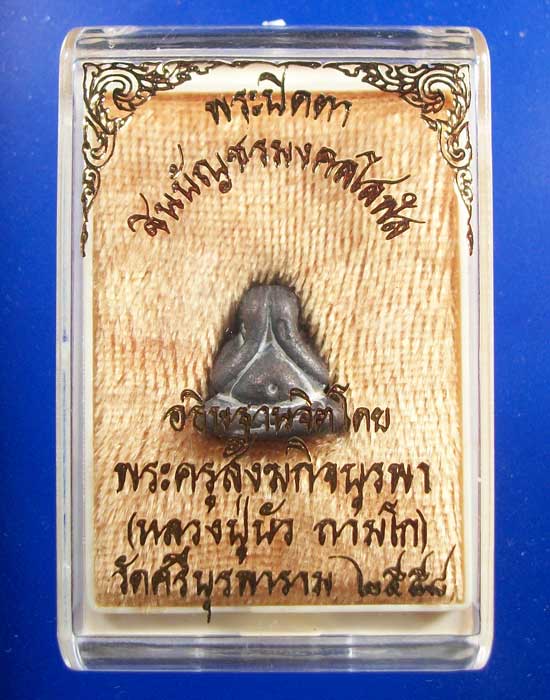 พระปิดตา
ชินบัญชรมงคลโสฬส
อธิษฐานจิตโดย
พระครูสังฆกิจบูรพา
(หลวงปู่บัว ถามโก)
วัดศรีบุรพาราม ๒๕๕๘